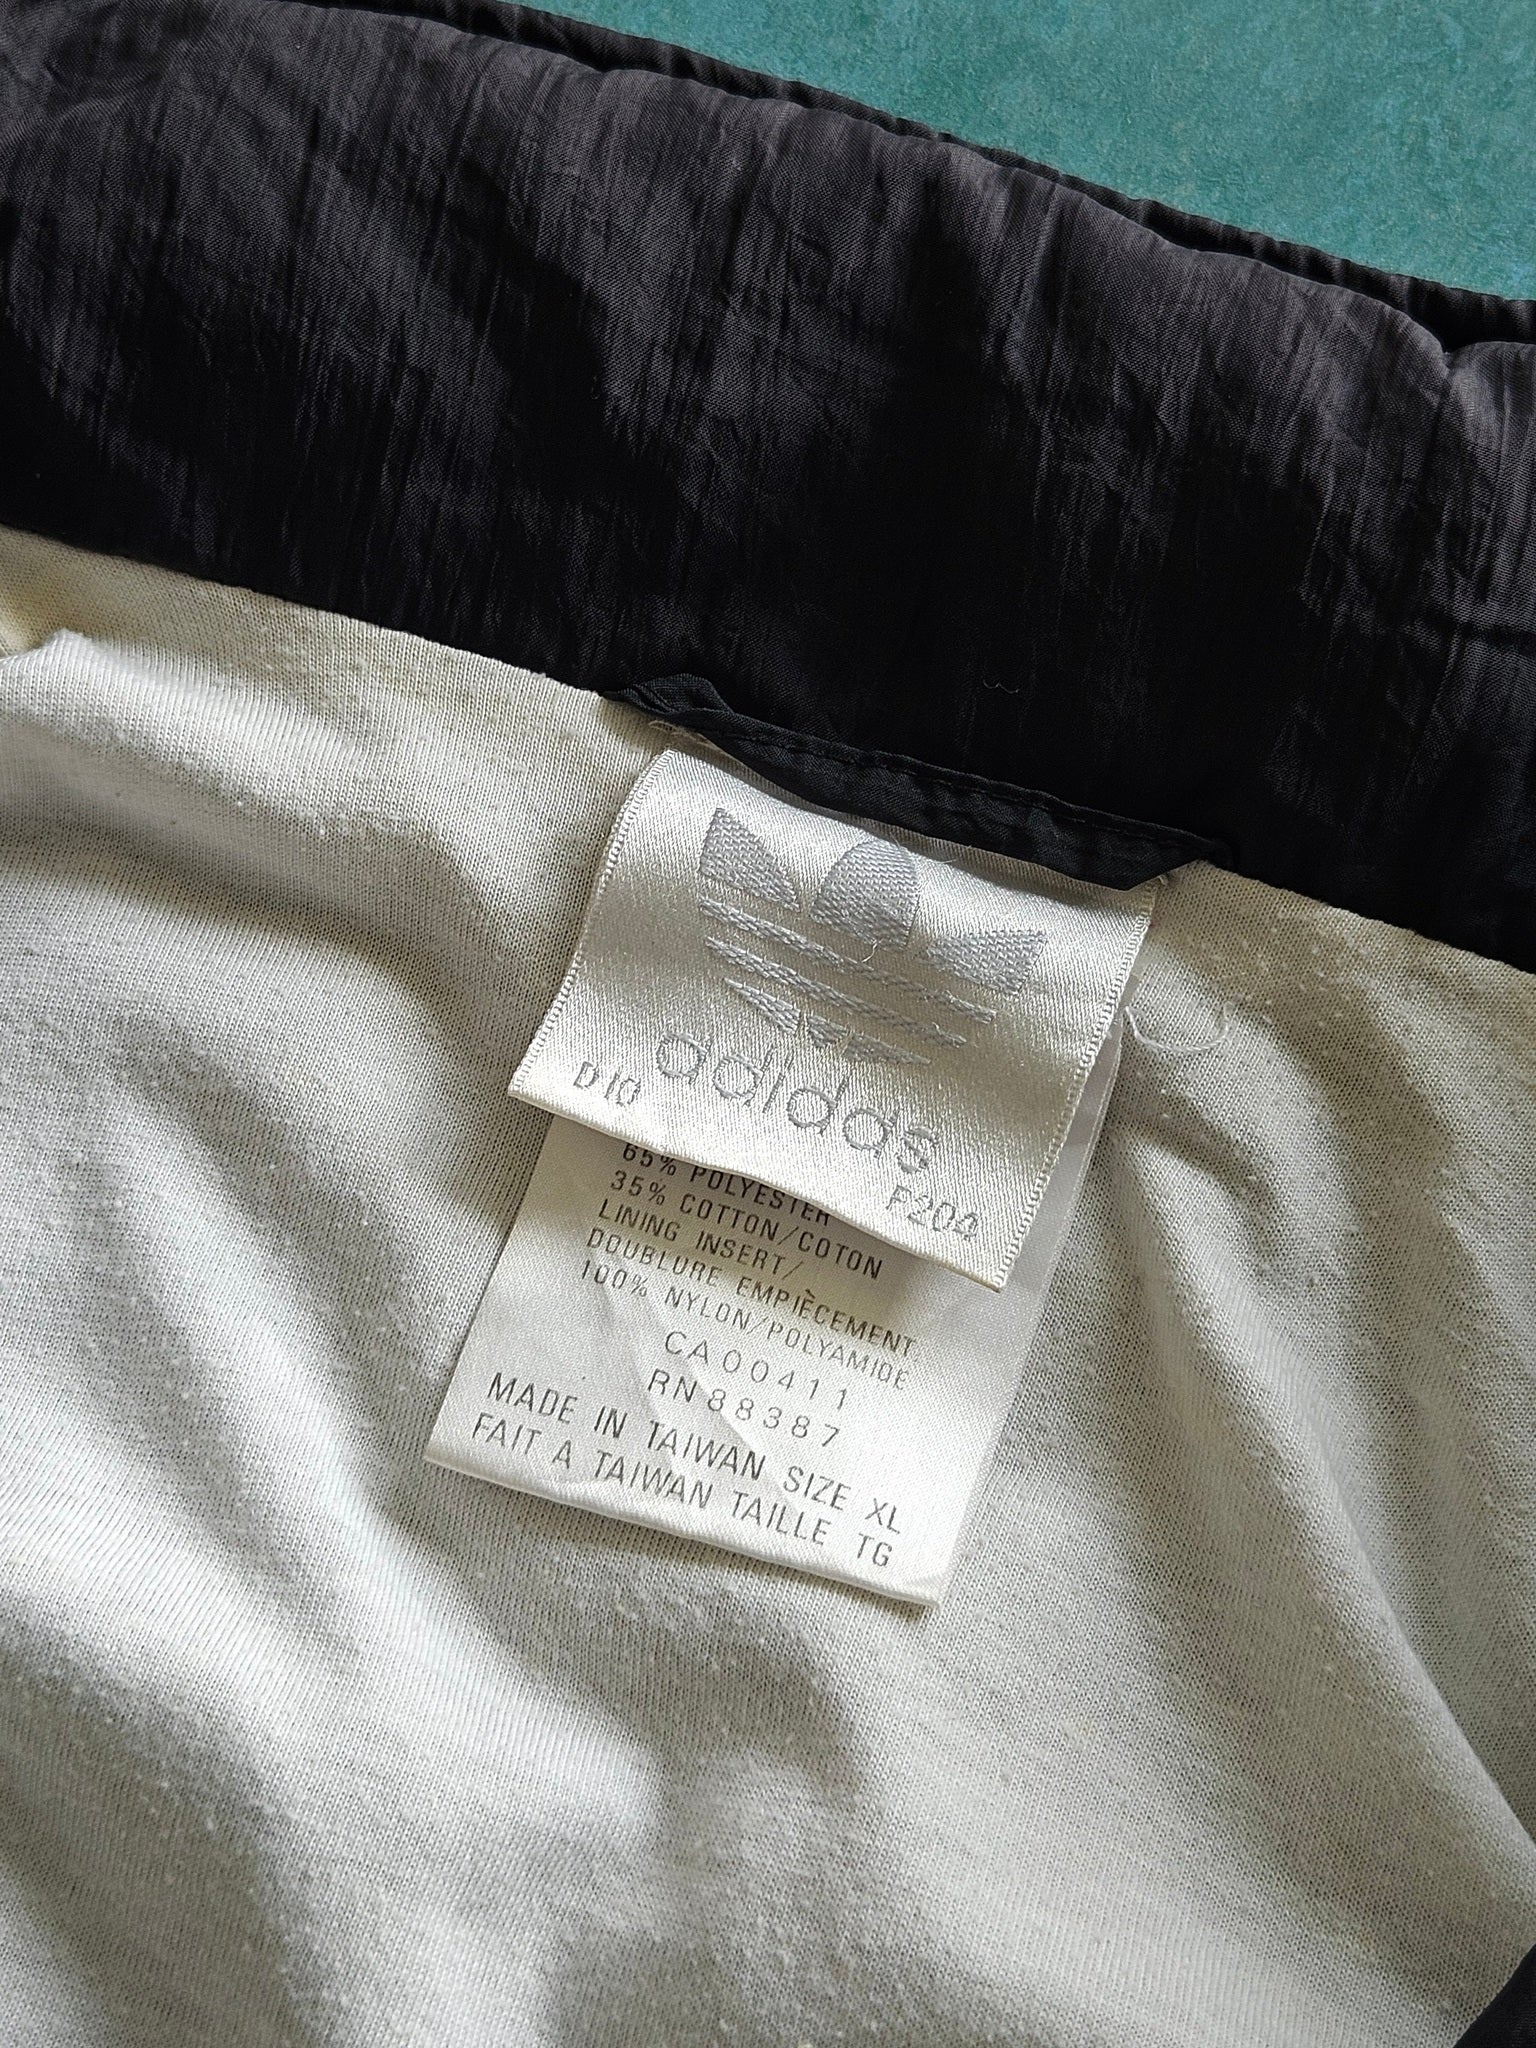 adidas
D10
F204
65% POLYESTER
35% COTTON/COTON
LINING INSERT/
DOUBLURE EMPIÈCEMENT
100% NYLON/POLYAMIDE
CA00411
RN88387
MADE IN TAIWAN SIZE XL
FAIT A TAIWAN TAILLE TG